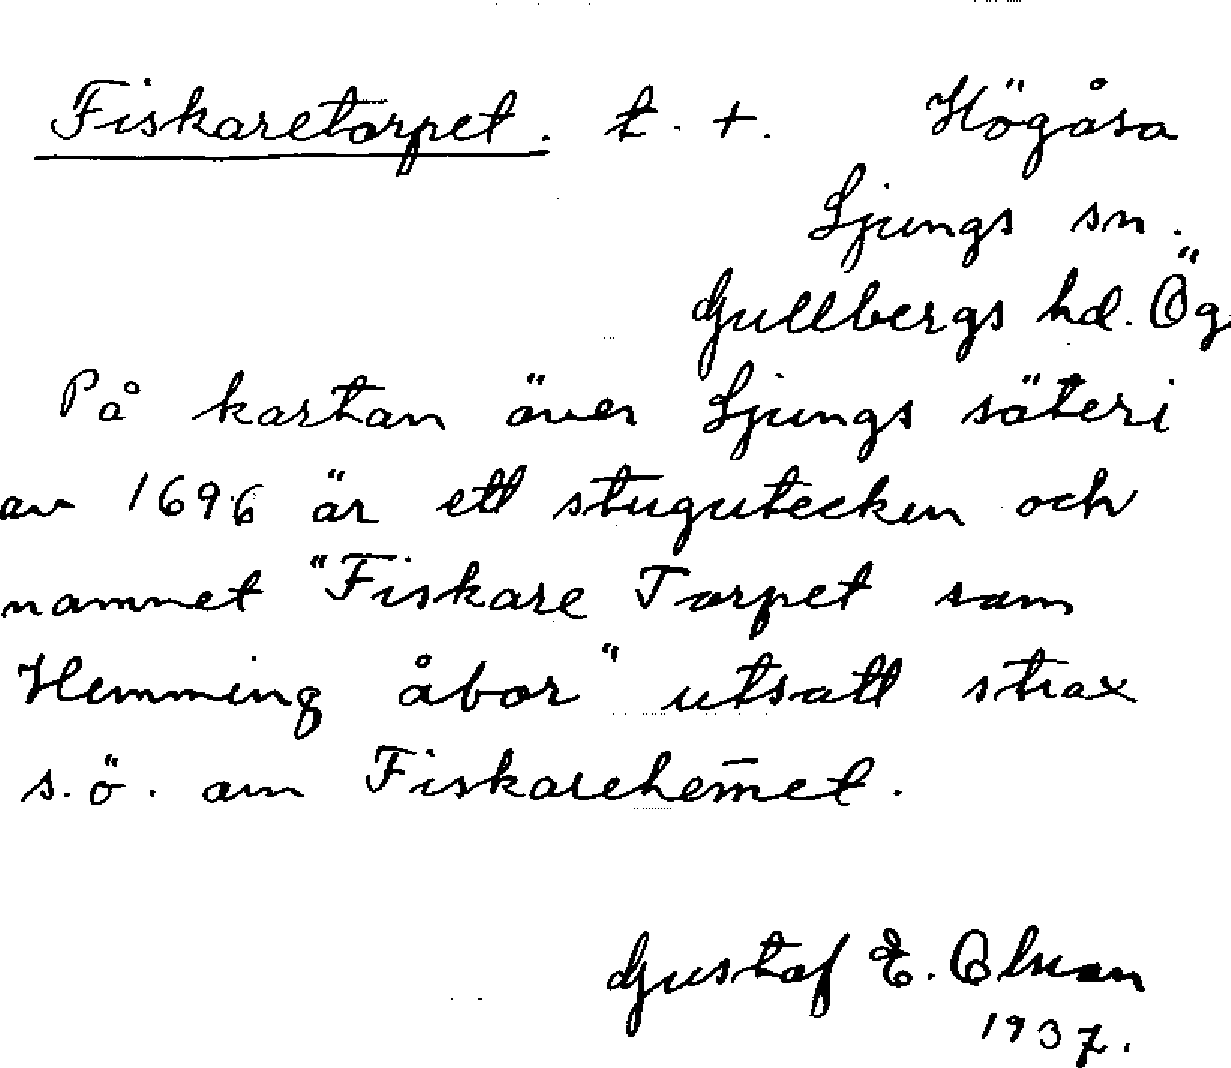 Fiskaretorpet. t. +. Högåsa
Ljungs sn.
Gullbergs hd. Ög
På kartan över Ljungs säteri
av 1696 är ett stugutecken och
namnet "Fiskare Torpet som
Hemming åbor" utsatt strax
s.ö. om Fiskarehem̄et.
Gustaf E. Olsson
1937.